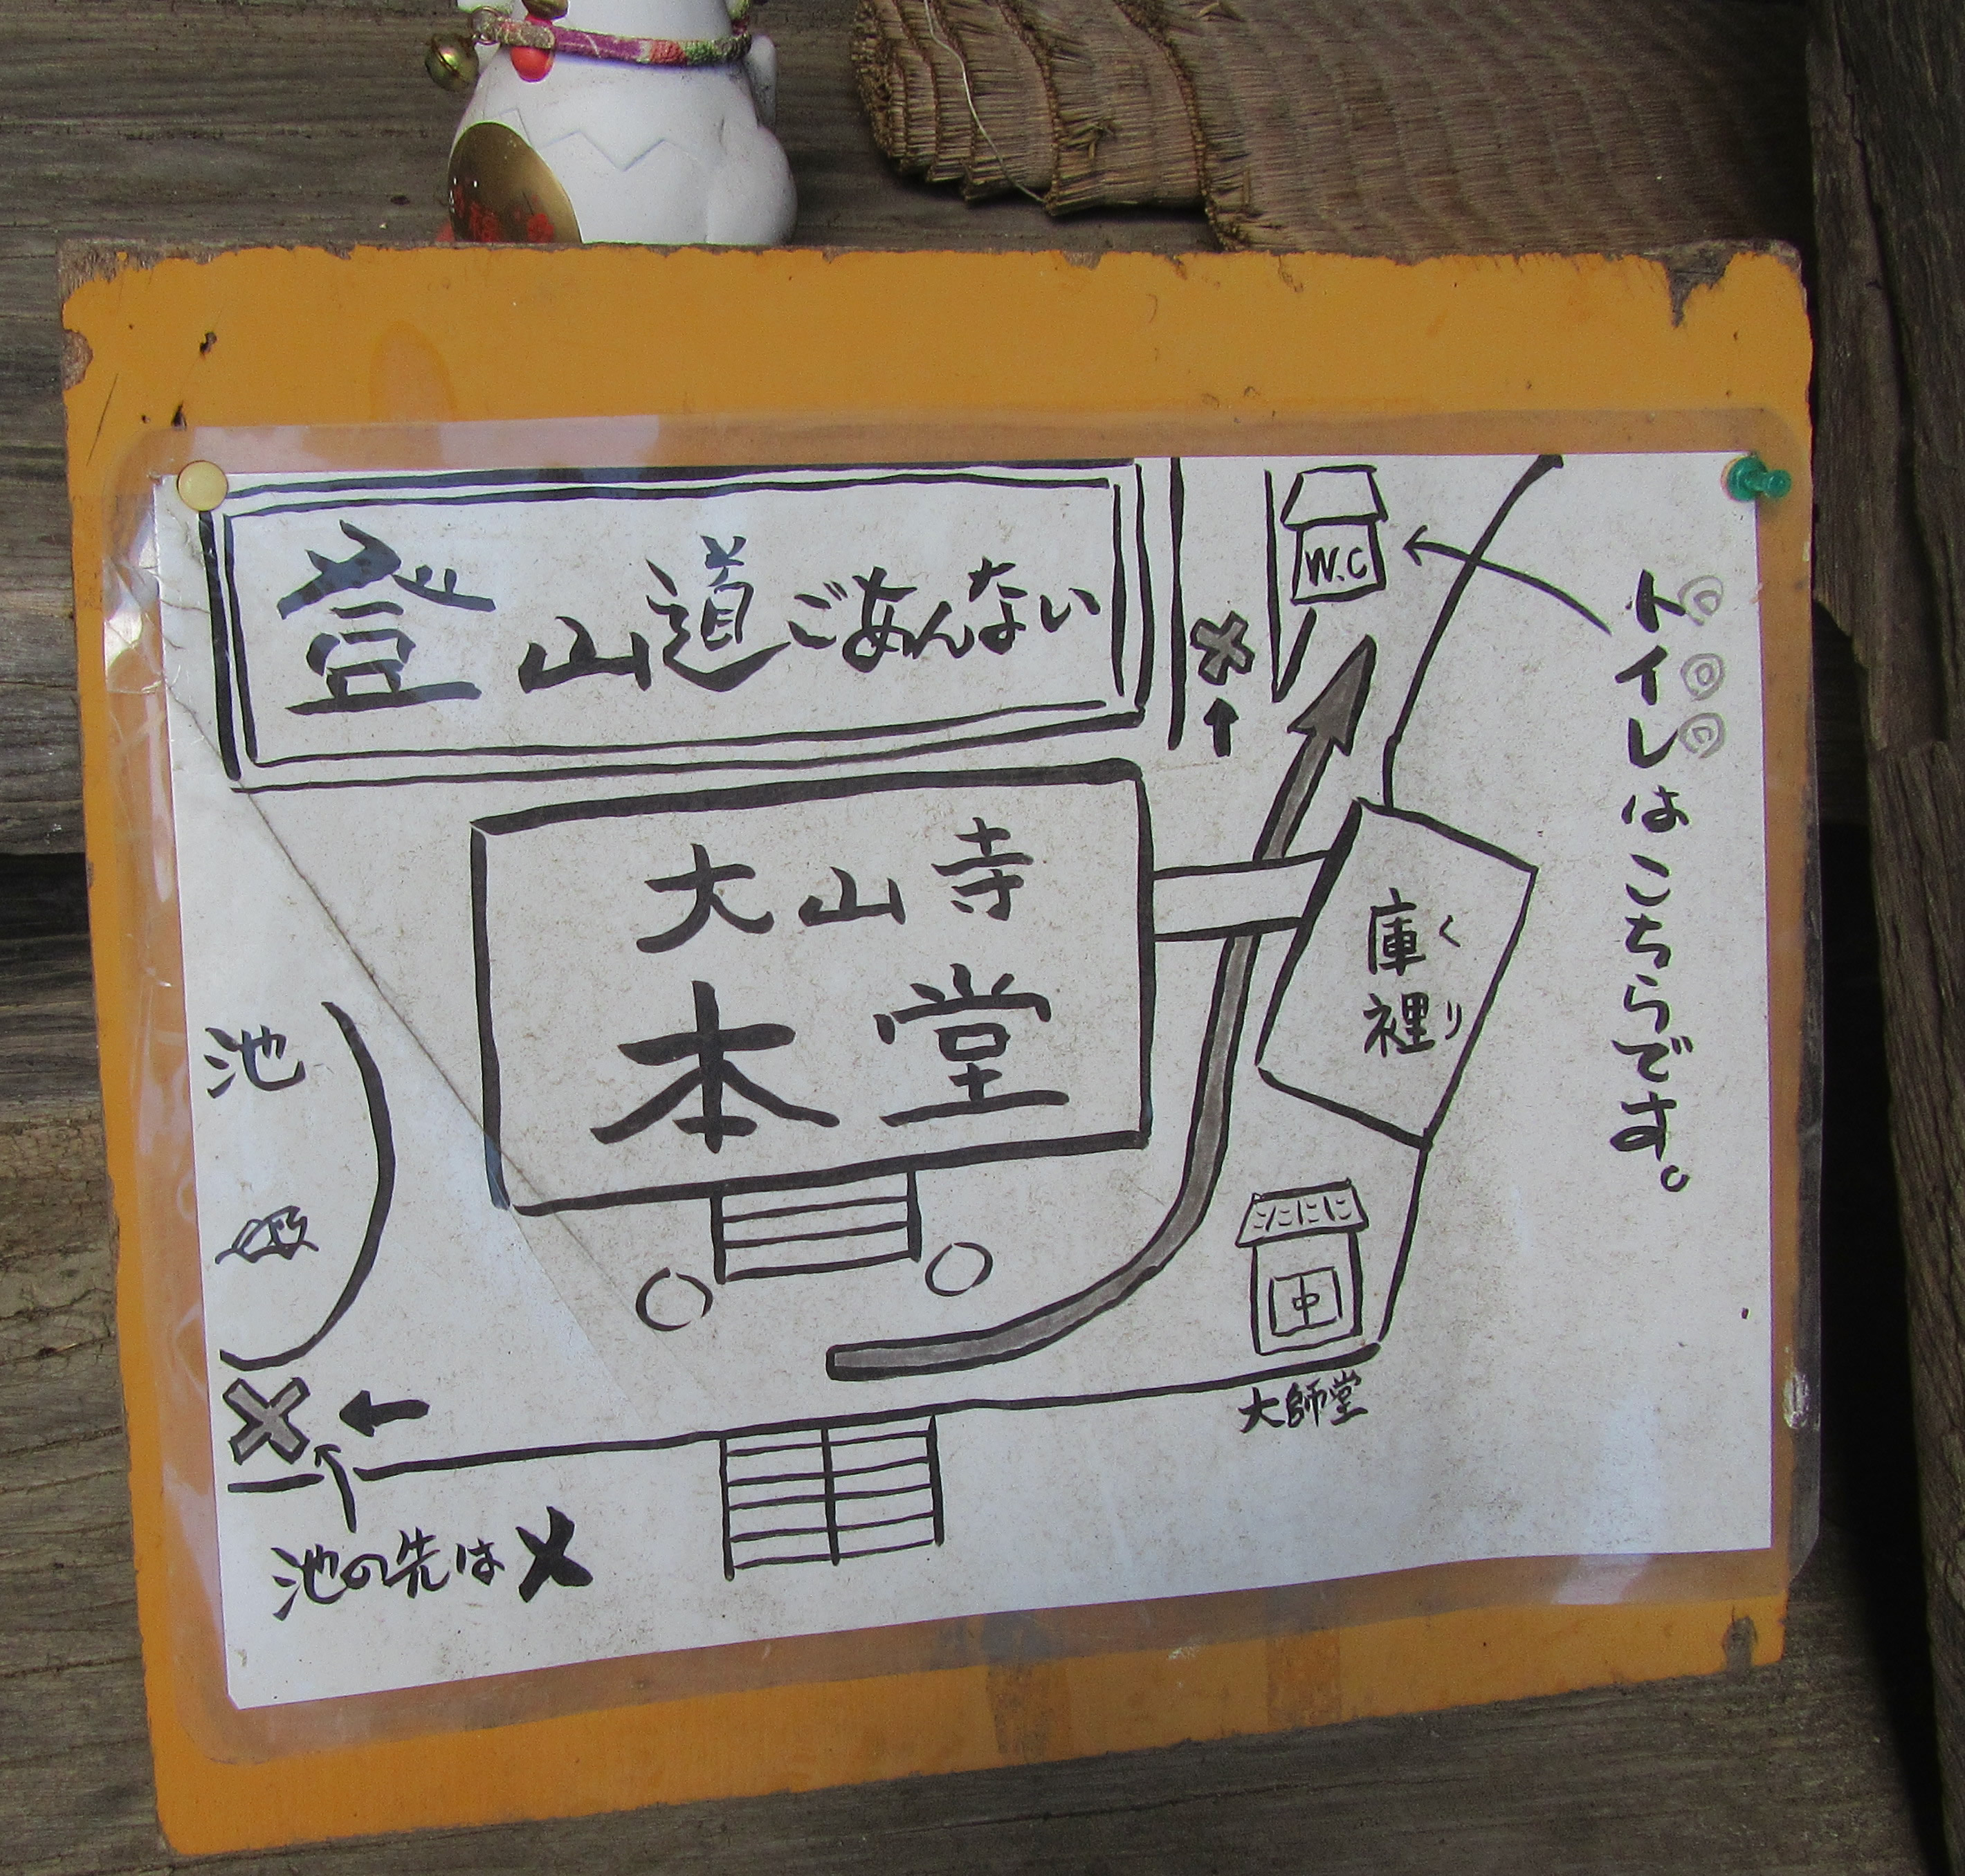 登山道ごあんない
W.C
トイレはこちらです。
大山寺
本堂
庫裡
くり
池
大師堂
池の先は✕